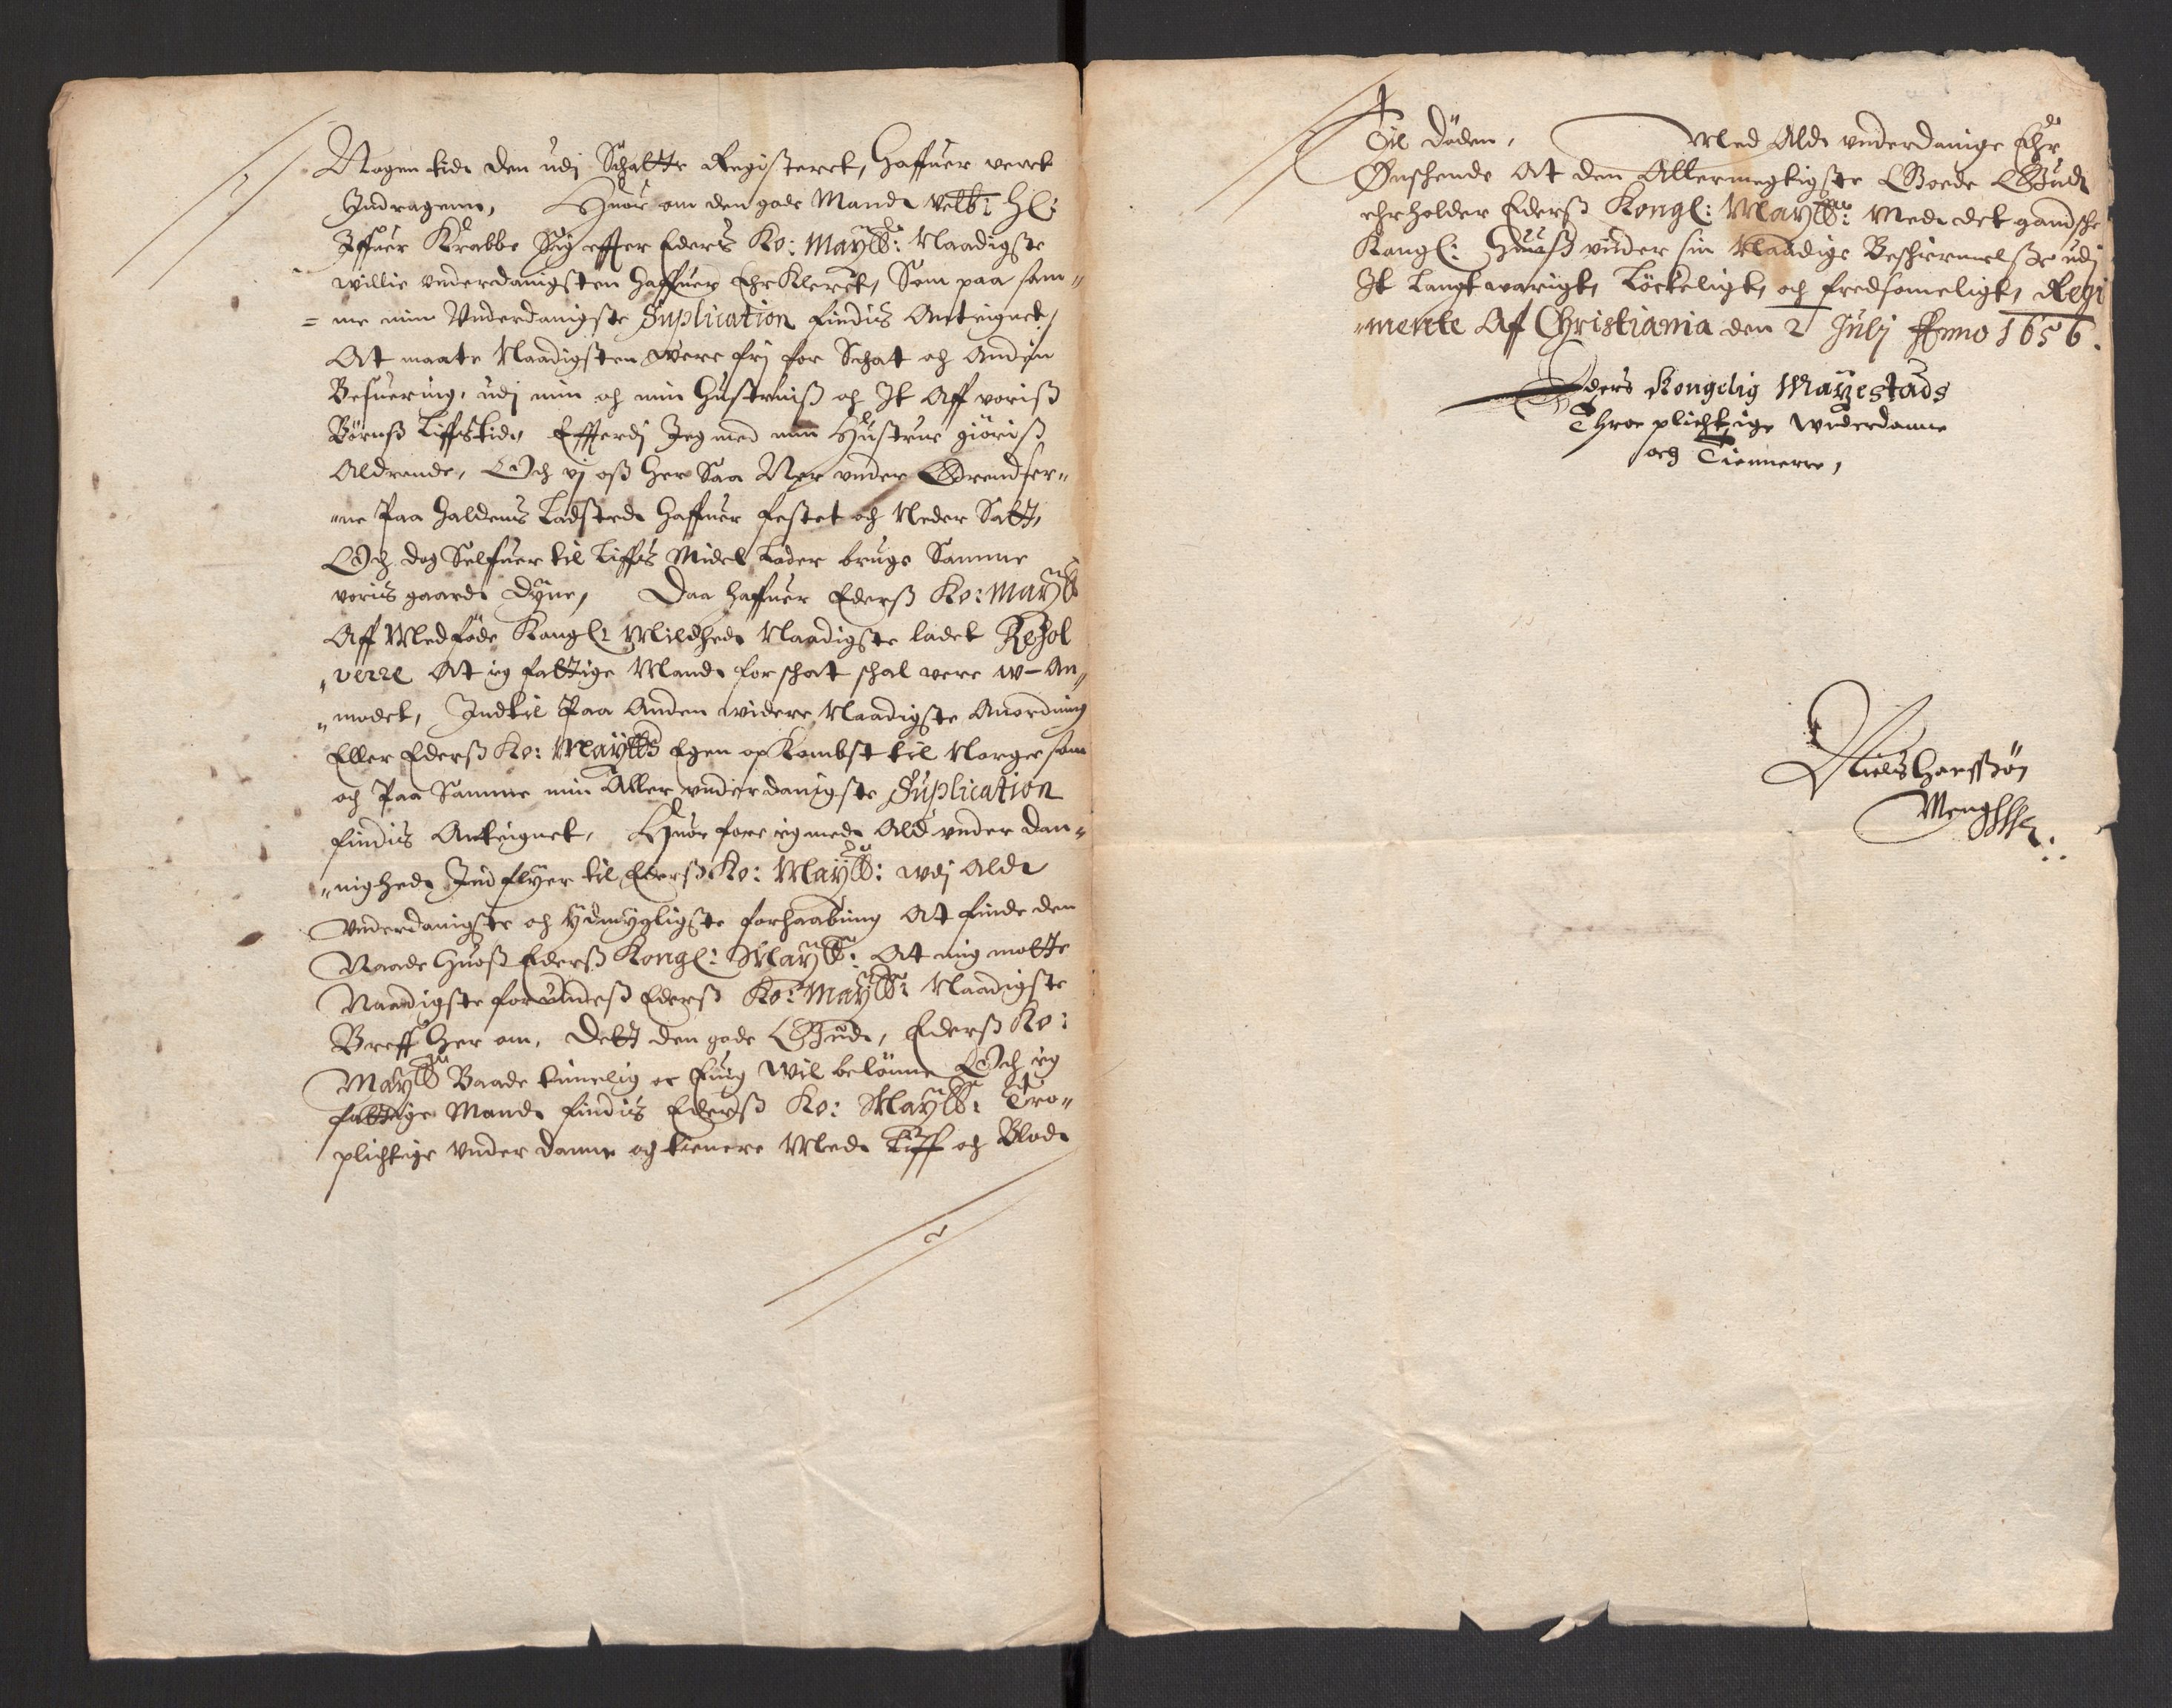 Nogen tide den udj Schatte Registeret, Haffuer veret
Inddragenn, Huor om den gode Mand Velb: Hl:
Iffuer Krabbe Sig effter Eders Ko: Maytts: Naadigste
willie vnderdanigsten haffuer Ehrkleret, Som paa sam„
= me min Vnderdanigste Suplication findis Antegnet,
At maate Naadigsten were frj for Schat och Anden
Besuering, udj min och min Hustruiß och It Aff voriß
Börnß Liffstide, Effterdj Jeg med min Hustrue giöriß
Aldrende, Och vj oß her saa Nær under Grendser„
„ne Paa Haldens Ladsted haffuer festet och Neder Satt,
Och dog Selffuer til Liffs Midel lader bruge Samme
voris gaard Dyne, Daa haffuer Ederß Ko: Maytt
Aff Medföde Kongl: Mildhed Naadigste ladet Resol
„verre At ieg fattige Mand for schat schal vere w-An„
„modet, Indtil Paa Anden widere Naadigste Anordning
Eller Ederß Ko: Maytts Egen opkombst til Norge som
och Paa Samme min Aller vnderdanigste Suplication
findis Antegnet, Huor fore ieg med Ald vnder dan„
„nighed Ind flyer til Ederß Ko: Maytt: wdj Ald
Vnderdanigste och ydmygligste forhaabning At finde den
Naade Huoß Ederß Kongl: Maytt: At mig motte
Naadigste forundeß Ederß Ko: Maytts: Naadigste
Breff Her om, Dett den gode Gud, Ederß Ko:
Maytt Baade timelig oc Euig Wil belönne Och ieg
fattige Mand findis Ederß Ko: Maytts: Tro„
plichtige vnder danne och tienere Med Liff och Blod
Til Döden, Med Ald vnderdanige Ehr
Ønschende At den Allermegtigste Goede Gud
ehrholder Ederß Kongl: Maytt: Med det gandsche
Kongl: Huuß vnder sin Naadige Beschiermelße udj
It Langt warigt, Löckeligt, och fredsomeligt, Regi
„mente Af Christiania den 2 Julj Anno 1656.
Eders Kongelig Mayestads
Throe plichtige vnderdanne
och Tiennerre,
Niels Hanßön